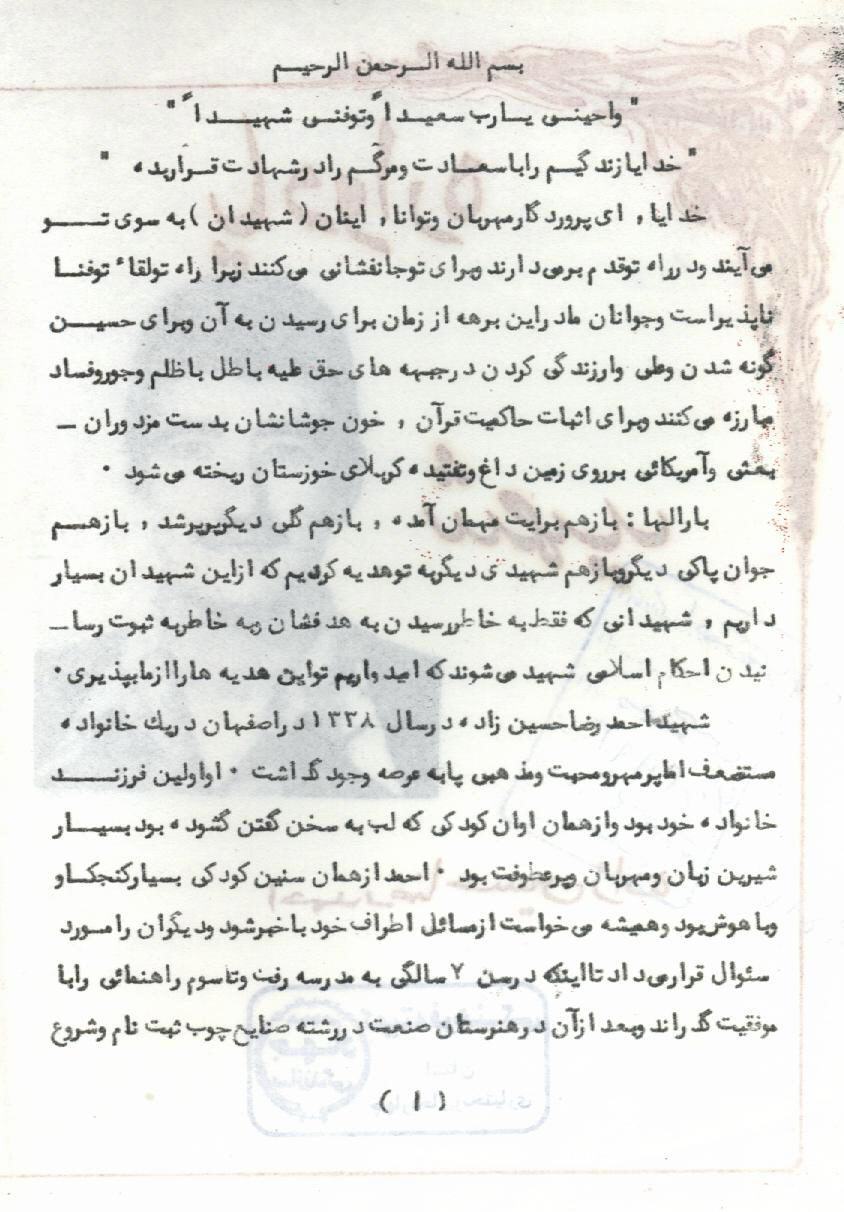 بسم الله الرحمن الرحیم
"واحینی یارب سعیداً وتوفنی شهیداً"
"خدایا زندگیم را با سعادت و مرگم را در شهادت قرار بده"
خدایا, ای پروردگار مهربان و توانا, اینان (شهیدان) به سوی تو
می‌آیند و در راه تو قدم برمی‌دارند و برای تو جانفشانی می‌کنند زیرا راه تو لقاء تو فنا
ناپذیر است و جوانان ما در این برهه از زمان برای رسیدن به آن و برای حسین
گونه شدن و علی وار زندگی کردن در جبهه های حق علیه باطل با ظلم و جور و فساد
مبارزه می‌کنند و برای اثبات حاکمیت قرآن, خون جوشانشان بدست مزدوران –
بعثی و آمریکائی بر روی زمین داغ و تفتیده کربلای خوزستان ریخته می‌شود.
بارالها: باز هم برایت مهمان آمده, باز هم گلی دیگر پرپر شد, باز هم
جوان پاکی دیگر و باز هم شهیدی دیگر به تو هدیه کردیم که از این شهیدان بسیار
داریم, شهیدانی که فقط به خاطر رسیدن به هدفشان و به خاطر به ثبوت رسا–
نیدن احکام اسلامی شهید می‌شوند که امیدواریم تو این هدیه ها را از ما بپذیری.
شهید احمد رضا حسین زاده در سال ۱۳۳۸ در اصفهان در یک خانواده
مستضعف اما پر مهر و محبت و مذهبی پا به عرصه وجود گذاشت. او اولین فرزند
خانواده خود بود و از همان اوان کودکی که لب به سخن گفتن گشوده بود بسیار
شیرین زبان و مهربان و پر عطوفت بود. احمد از همان سنین کودکی بسیار کنجکاو
و با هوش بود و همیشه می‌خواست از مسائل اطراف خود با خبر شود و دیگران را مورد
سئوال قرار می‌داد تا اینکه در سن ۷ سالگی به مدرسه رفت و تا سوم راهنمائی را با
موفقیت گذراند و بعد از آن در هنرستان صنعت در رشته صنایع چوب ثبت نام و شروع
(۱)